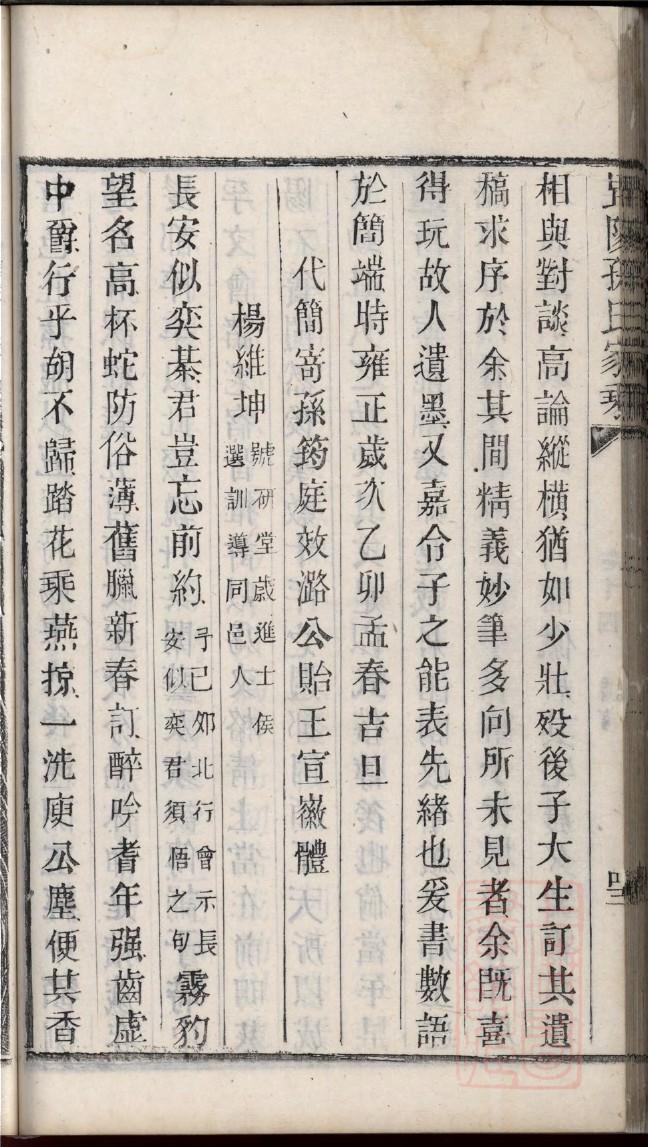 孫氏家乘
相與對談高論縱橫猶如少壯歿後子大生訂其遺
稿求序於余其間精義妙筆多向所未見者余既喜
得玩故人遺墨又嘉令子之能表先緒也爰書數語
於簡端時雍正歲次乙卯孟春吉旦
代簡寄孫筠庭效潞公貽王宣徽體
楊維坤
號研堂歲進士候
選訓導同邑人
長安似奕棊君豈忘前約
予己夘北行曾示長
安似奕君須悟之句
霧豹
望名高杯蛇防俗薄舊臘新春訂醉吟耆年强齒虛
中爵行乎胡不歸踏花乘燕掠一洗庾公塵便其香